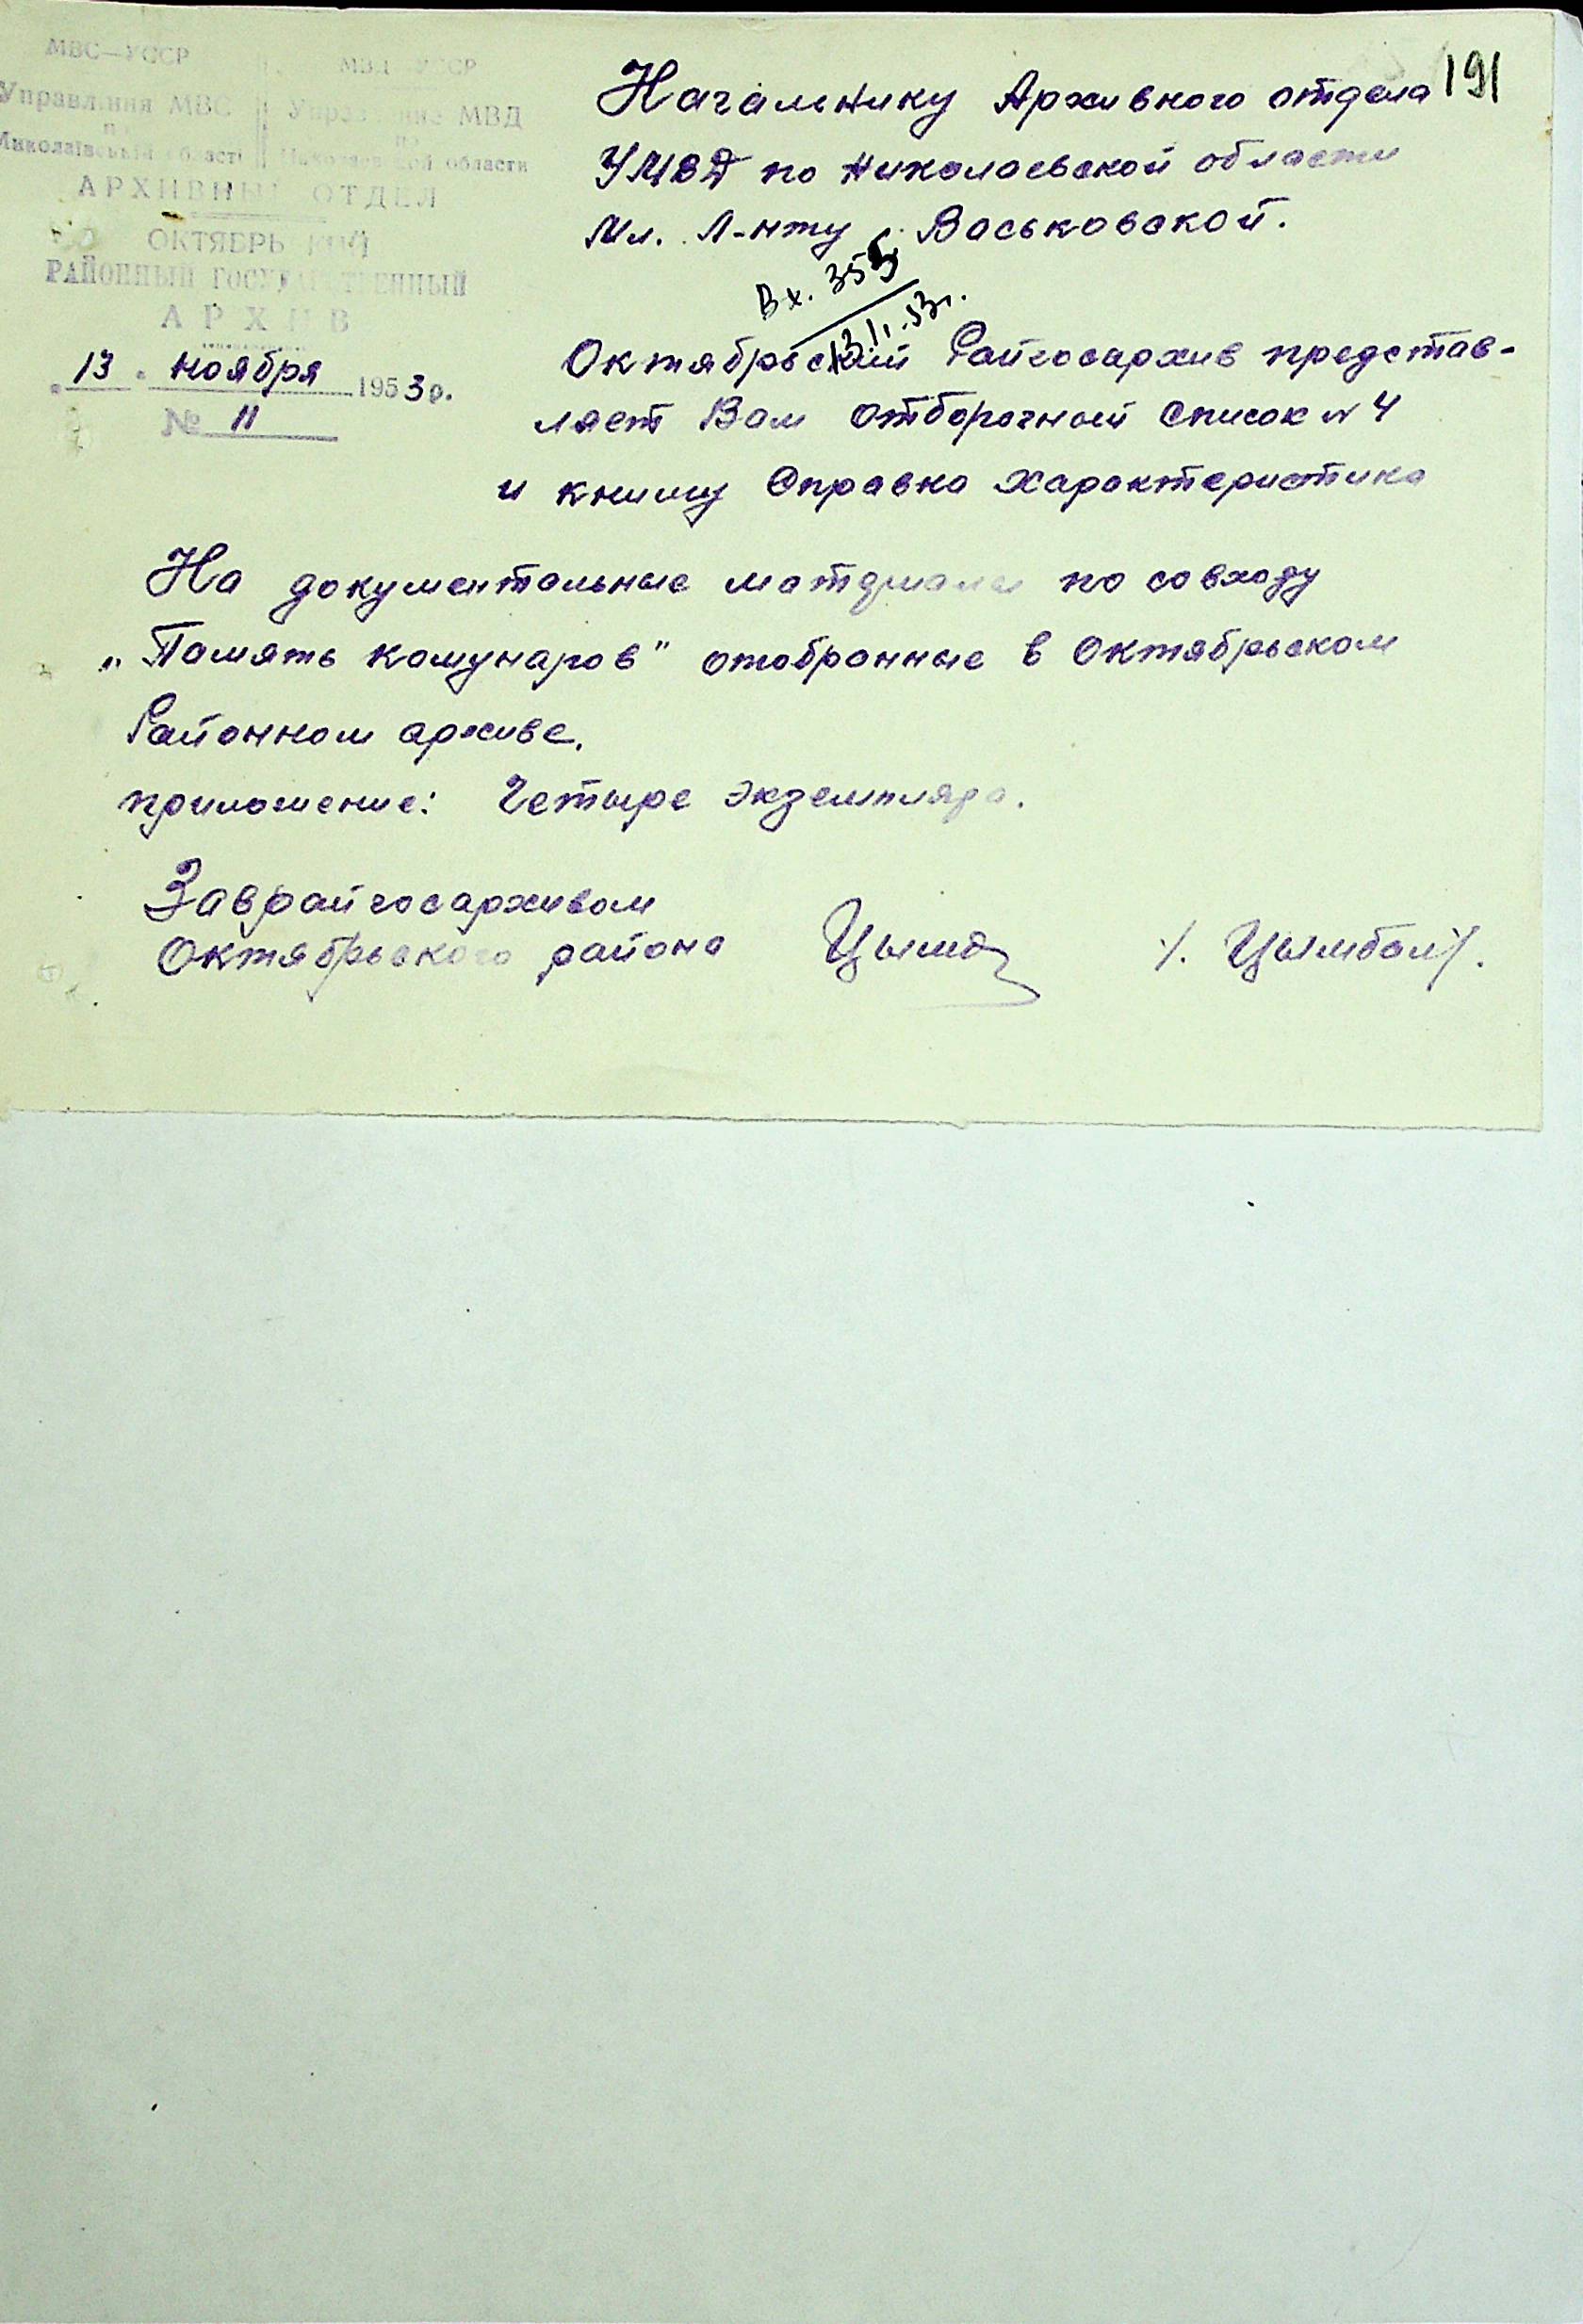 191
МВС—УССР
Управління МВС
по
Миколаївській області
МВД УССР
Управление МВД
по
Николаевской области
АРХИВНЫЙ ОТДЕЛ
ОКТЯБРЬСКИЙ
РАЙОННЫЙ ГОСУДАРСТВЕННЫЙ
АРХИВ
"13" ноября 1953 г.
№ 11
Начальнику Архивного отдела
УМВД по Николаевской области
Мл. Л-нту Васьковской.
Вх. 355
13/11.53г.
Октябрьский Райгосархив представ-
ляет Вам отборочный список N 4
и книгу Справка характеристика
На документальные материалы по совхозу
„Память комунаров" отобранные в Октябрьском
Районном архиве.
приложение: Четыре экземпляра.
Заврайгосархивом
Октябрьского района /. Цымбал/.